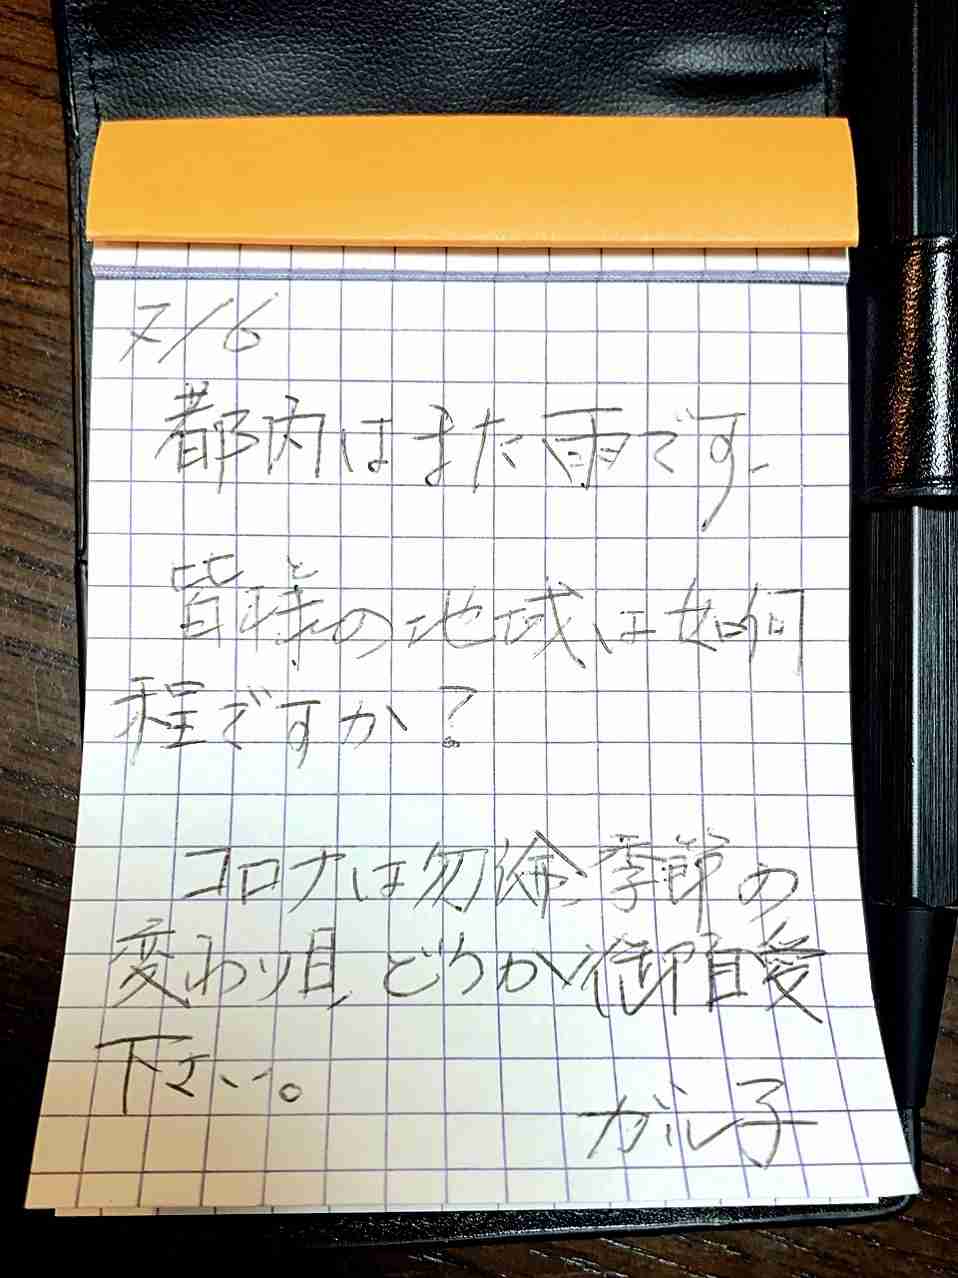 7/6
都内はまた雨です.
皆様の地域は如何
程ですか?
コロナは勿論季節の
変わり目,どうか御自愛
下さい。
ガル子